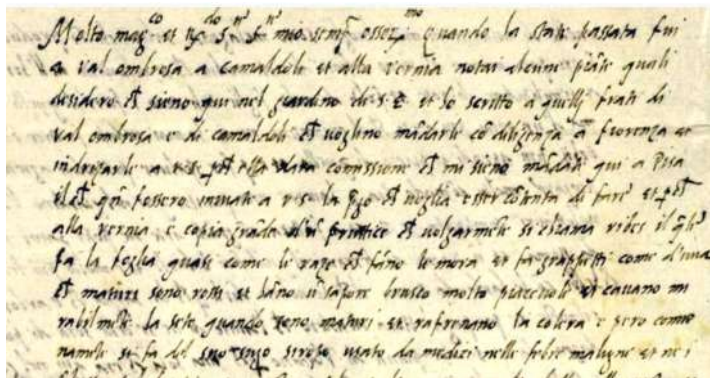 Molto mag.co et R.do S.r S.r mio semp. osser.mo Quando la state passata fui
a val ombrosa a camaldoli et alla vernia notai alcune piãte quali
desidero ch sieno qui nel giardino di s. E. et ho scritto a quelli frati di
val ombrosa e di camaldoli ch voglino mãdarle cõ diligenza a fiorenza et
indrizarle a v. s. ella dara cõmissione ch mi sieno mãdate qui a Pisa
il ch qñ fossero inviate a v. s. la p̃go ch voglia esser cõtenta di fare et
alla vernia è copia grãde d'un fruttice ch volgarmẽte si chiama ribes il q̃le
fa la foglia quasi come le raze ch fãno le mora et fa grappetti come d'uva
ch maturi sono rossi et hãno ũ sapore brusco molto piacevole et cavano mi
rabilmẽte la sete quando sono maturi et rafrenano la colera e pero come
namẽte si fa del suo sugo siropo usato da medici nelle febre maligne et ne i